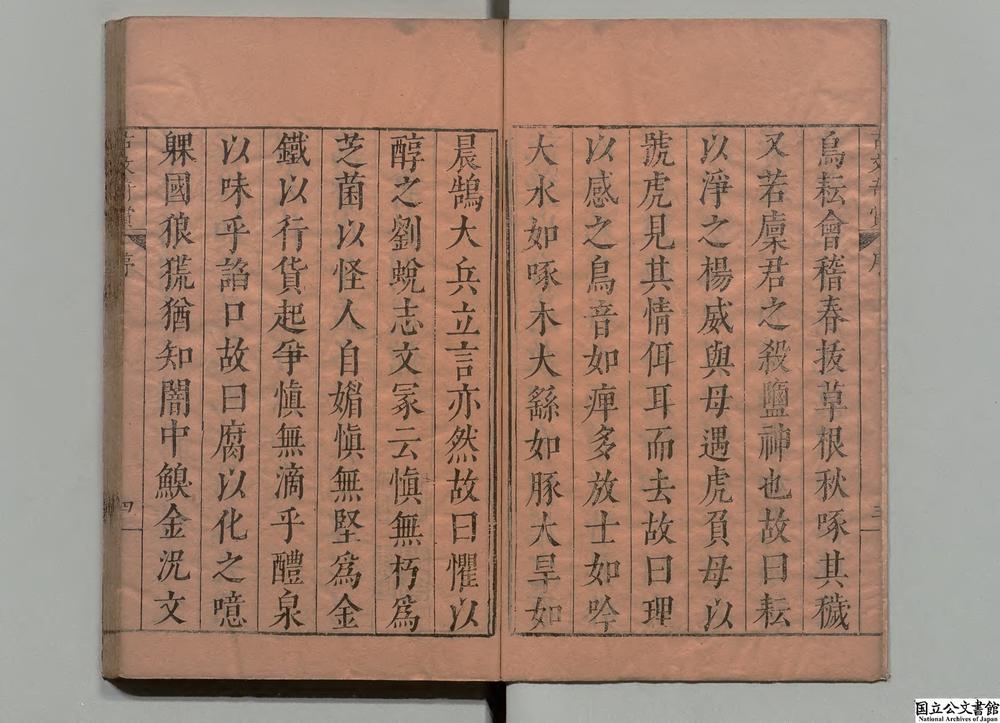 鳥耘會稽春拔草根秋啄其穢
又若廩君之殺鹽神也故曰耘
以淨之楊威與母遇虎負母以
號虎見其情佴耳而去故曰理
以感之鳥音如痺多放士如吟
大水如啄木大繇如豚大旱如
晨鵠大兵立言亦然故曰懼以
醇之劉蛻志文冢云慎無朽爲
芝菌以怪人自媚慎無堅爲金
鐵以行貨起爭慎無滴乎醴泉
以味乎諂口故曰腐以化之噫
躶國狼㹮猶知闇中鼰金況文
国立公文書館
National Archives of Japan